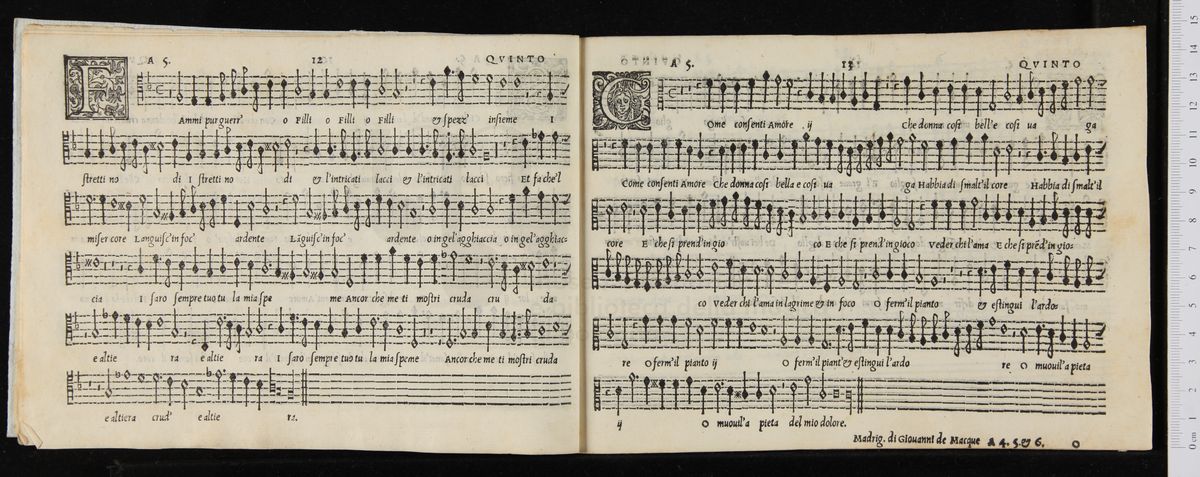 A 5. 12 QVINTO
F Ammi pur guerr' o Filli o Filli o Filli & spezz' insieme I
stretti no di I stretti no di & l'intricati lacci & l'intricati lacci Et fa che'l
miser core Languisc'in foc' ardente Lãguisc'in foc' ardente o in gel'agghiaccia o in gel'agghiac=
cia I saro sempre tuo tu la mia spe me Ancor che me ti mostri cruda cru da
e altie ra e altie ra I saro sempre tuo tu la mia speme Ancor che me ti mostri cruda
e altiera crud' e altie ra.
A 5. 13 QVINTO
C Ome consenti Amore ij Che donna cosi bell'e cosi ua ga
Come consenti Amore Che donna cosi bella e cosi ua ga Habbia di smalt'il core Habbia di smalt'il
core E che si prend'in gio co E che si prend'in gioco Veder chi l'ama E che si prẽd'in gio=
co Veder chi l'ama in lagrime & in foco O ferm'il pianto & estingui l'ardo=
re O ferm'il pianto ij O ferm'il piant'& estingui l'ardo re O muouil'a pieta
ij O muouil'a pieta del mio dolore.
Madrig. di Giouanni de Macque A 4. 5. & 6. O
0 cm 1 2 3 4 5 6 7 8 9 10 11 12 13 14 15